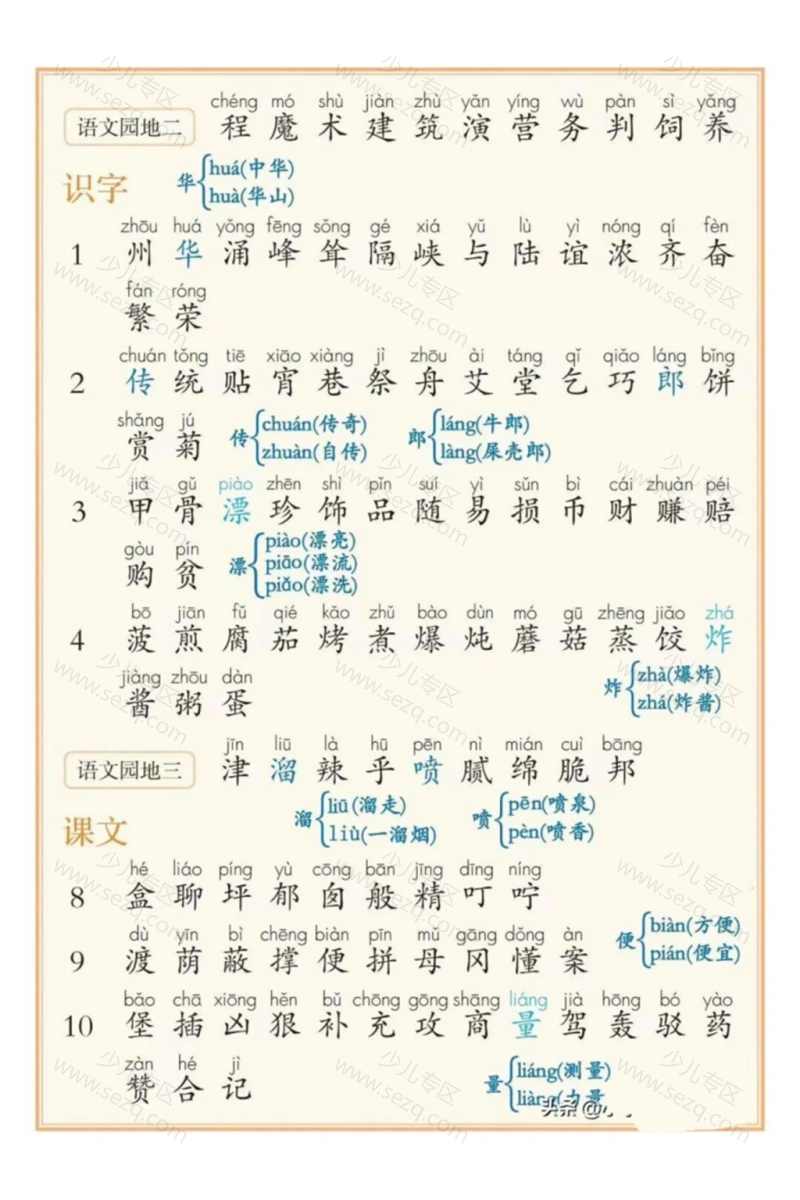 chéng mó shù jiàn zhù yǎn yíng wù pàn sì yǎng
语文园地二 程 魔 术 建 筑 演 营 务 判 饲 养
识字 华 huá(中华)
huà(华山)
zhōu huá yǒng fēng sǒng gé xiá yǔ lù yì nóng qí fèn
1 州 华 涌 峰 耸 隔 峡 与 陆 谊 浓 齐 奋
fán róng
繁 荣
chuán tǒng tiē xiāo xiàng jì zhōu ài táng qǐ qiǎo láng bǐng
2 传 统 贴 宵 巷 祭 舟 艾 堂 乞 巧 郎 饼
shǎng jú
赏 菊 传 chuán(传奇) 郎 láng(牛郎)
zhuàn(自传) làng(屎壳郎)
jiǎ gǔ piào zhēn shì pǐn suí yì sǔn bì cái zhuàn péi
3 甲 骨 漂 珍 饰 品 随 易 损 币 财 赚 赔
gòu pín
购 贫 漂 piào(漂亮)
piāo(漂流)
piǎo(漂洗)
bō jiān fǔ qié kǎo zhǔ bào dùn mó gū zhēng jiǎo zhá
4 菠 煎 腐 茄 烤 煮 爆 炖 蘑 菇 蒸 饺 炸
jiàng zhōu dàn
酱 粥 蛋 炸 zhà(爆炸)
zhá(炸酱)
jīn liū là hū pēn nì mián cuì bāng
语文园地三 津 溜 辣 乎 喷 腻 绵 脆 邦
课文 溜 liū(溜走) 喷 pēn(喷泉)
liù(一溜烟) pèn(喷香)
hé liáo píng yù cōng bān jīng dīng níng
8 盒 聊 坪 郁 囱 般 精 叮 咛
dù yīn bì chēng biàn pīn mǔ gāng dǒng àn
9 渡 荫 蔽 撑 便 拼 母 冈 懂 案 便 biàn(方便)
pián(便宜)
bǎo chā xiōng hěn bǔ chōng gōng shāng liáng jià hōng bó yào
10 堡 插 凶 狠 补 充 攻 商 量 驾 轰 驳 药
zàn hé jì
赞 合 记 量 liáng(测量)
liàng(力量
头条 @
少儿专区
www.sezq.com